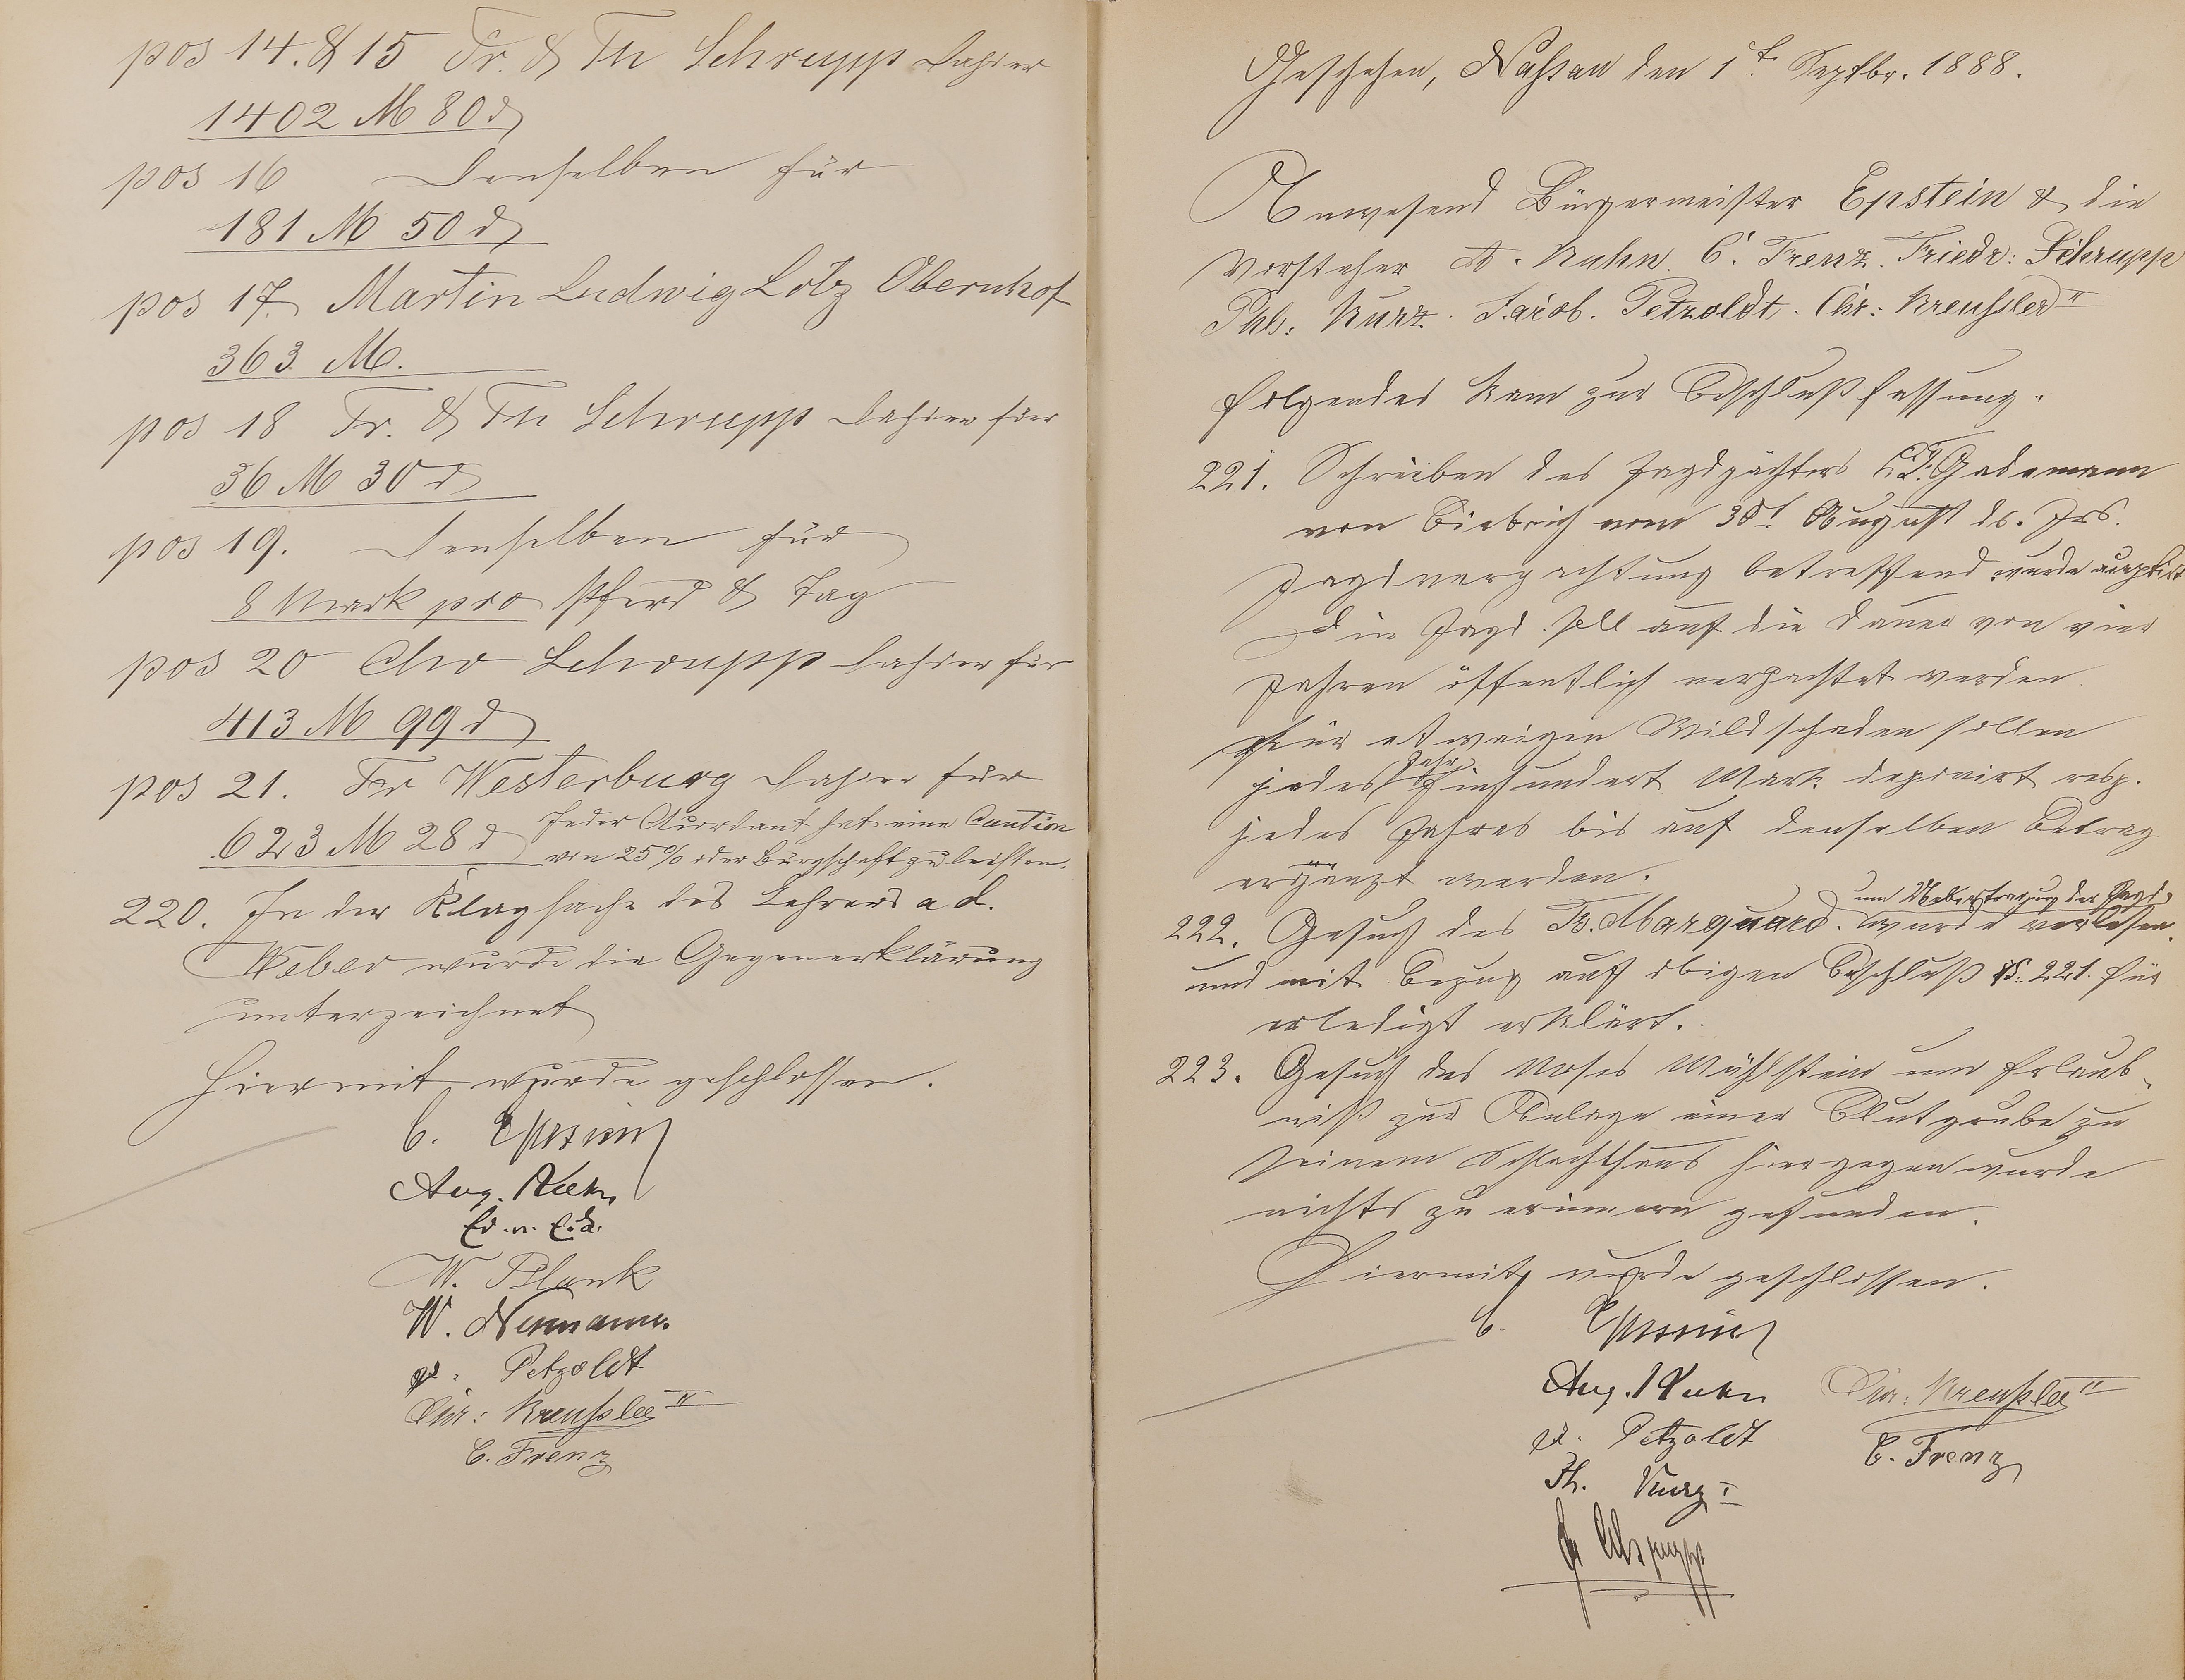 pos 14. & 15 Fr. & Th Schrupp dahier
1402 M 80 d
pos 16 Denselben für
181 M 50 d
pos 17. Martin Ludwig Lotz Obernhof
363 M.
pos 18 Fr. & Th Schrupp dahier für
36 M 30 d
pos 19. Denselben für
8 Mark pro Pferd & Tag
pos 20 Chr Schrupp dahier für
413 M 99 d
pos 21. Fr Westerburg dahier für
623 M 28 d Jeder Accordant hat eine Caution
von 25% oder Bürgschaft zu leisten.
220. In der Klagsache des Lehrers a d.
Weber wurde die Gegenerklärung
unterzeichnet
Hiermit wurde geschlossen.
C. Epstein
Aug. Kuhn
W. Blank
W. Neumann.
J. Petzoldt
Chr: Kreußler II
C. Frenz
Geschehen, Naßau den 1t. Septbr. 1888.
Anwesend Bürgermeister Epstein & die
Vorsteher A. Kuhn. C. Frenz. Friedr: Schrupp
Phl: Kurz. Jacob. Petzoldt. Chr: Kreußler II
folgendes kam zur Beschlußfassung.
221. Schreiben des Jagdpächters C. F. Gademann
von Biebrich vom 30t. August ds. Jrs.
Jagdverpachtung betreffend wurde acceptirt
Die Jagd soll auf die Dauer von vier
Jahren öffentlich verpachtet werden.
Für etwaigen Wildschaden sollen
jedes Jahr fünfhundert Mark deponirt resp.
jedes Jahres bis auf denselben Betrag
ergänzt werden.
um Uebertragung der Jagd
222. Gesuch des Fr. Marquard. wurde verlesen
und mit Bezug auf obigen Beschluß §. 221. für
erledigt erklärt.
223. Gesuch des Moses Mühlstein um Erlaub-
niß zur Anlage einer Blutgrube zu
seinem Schlachthaus hiergegen wurde
nichts zu erinnern gefunden.
Hiermit wurde geschlossen.
C. Epstein
Aug. Kuhn Chr: Kreußler II
J. Petzoldt C. Frenz
Ph. Kurz I
Fr Schrupp